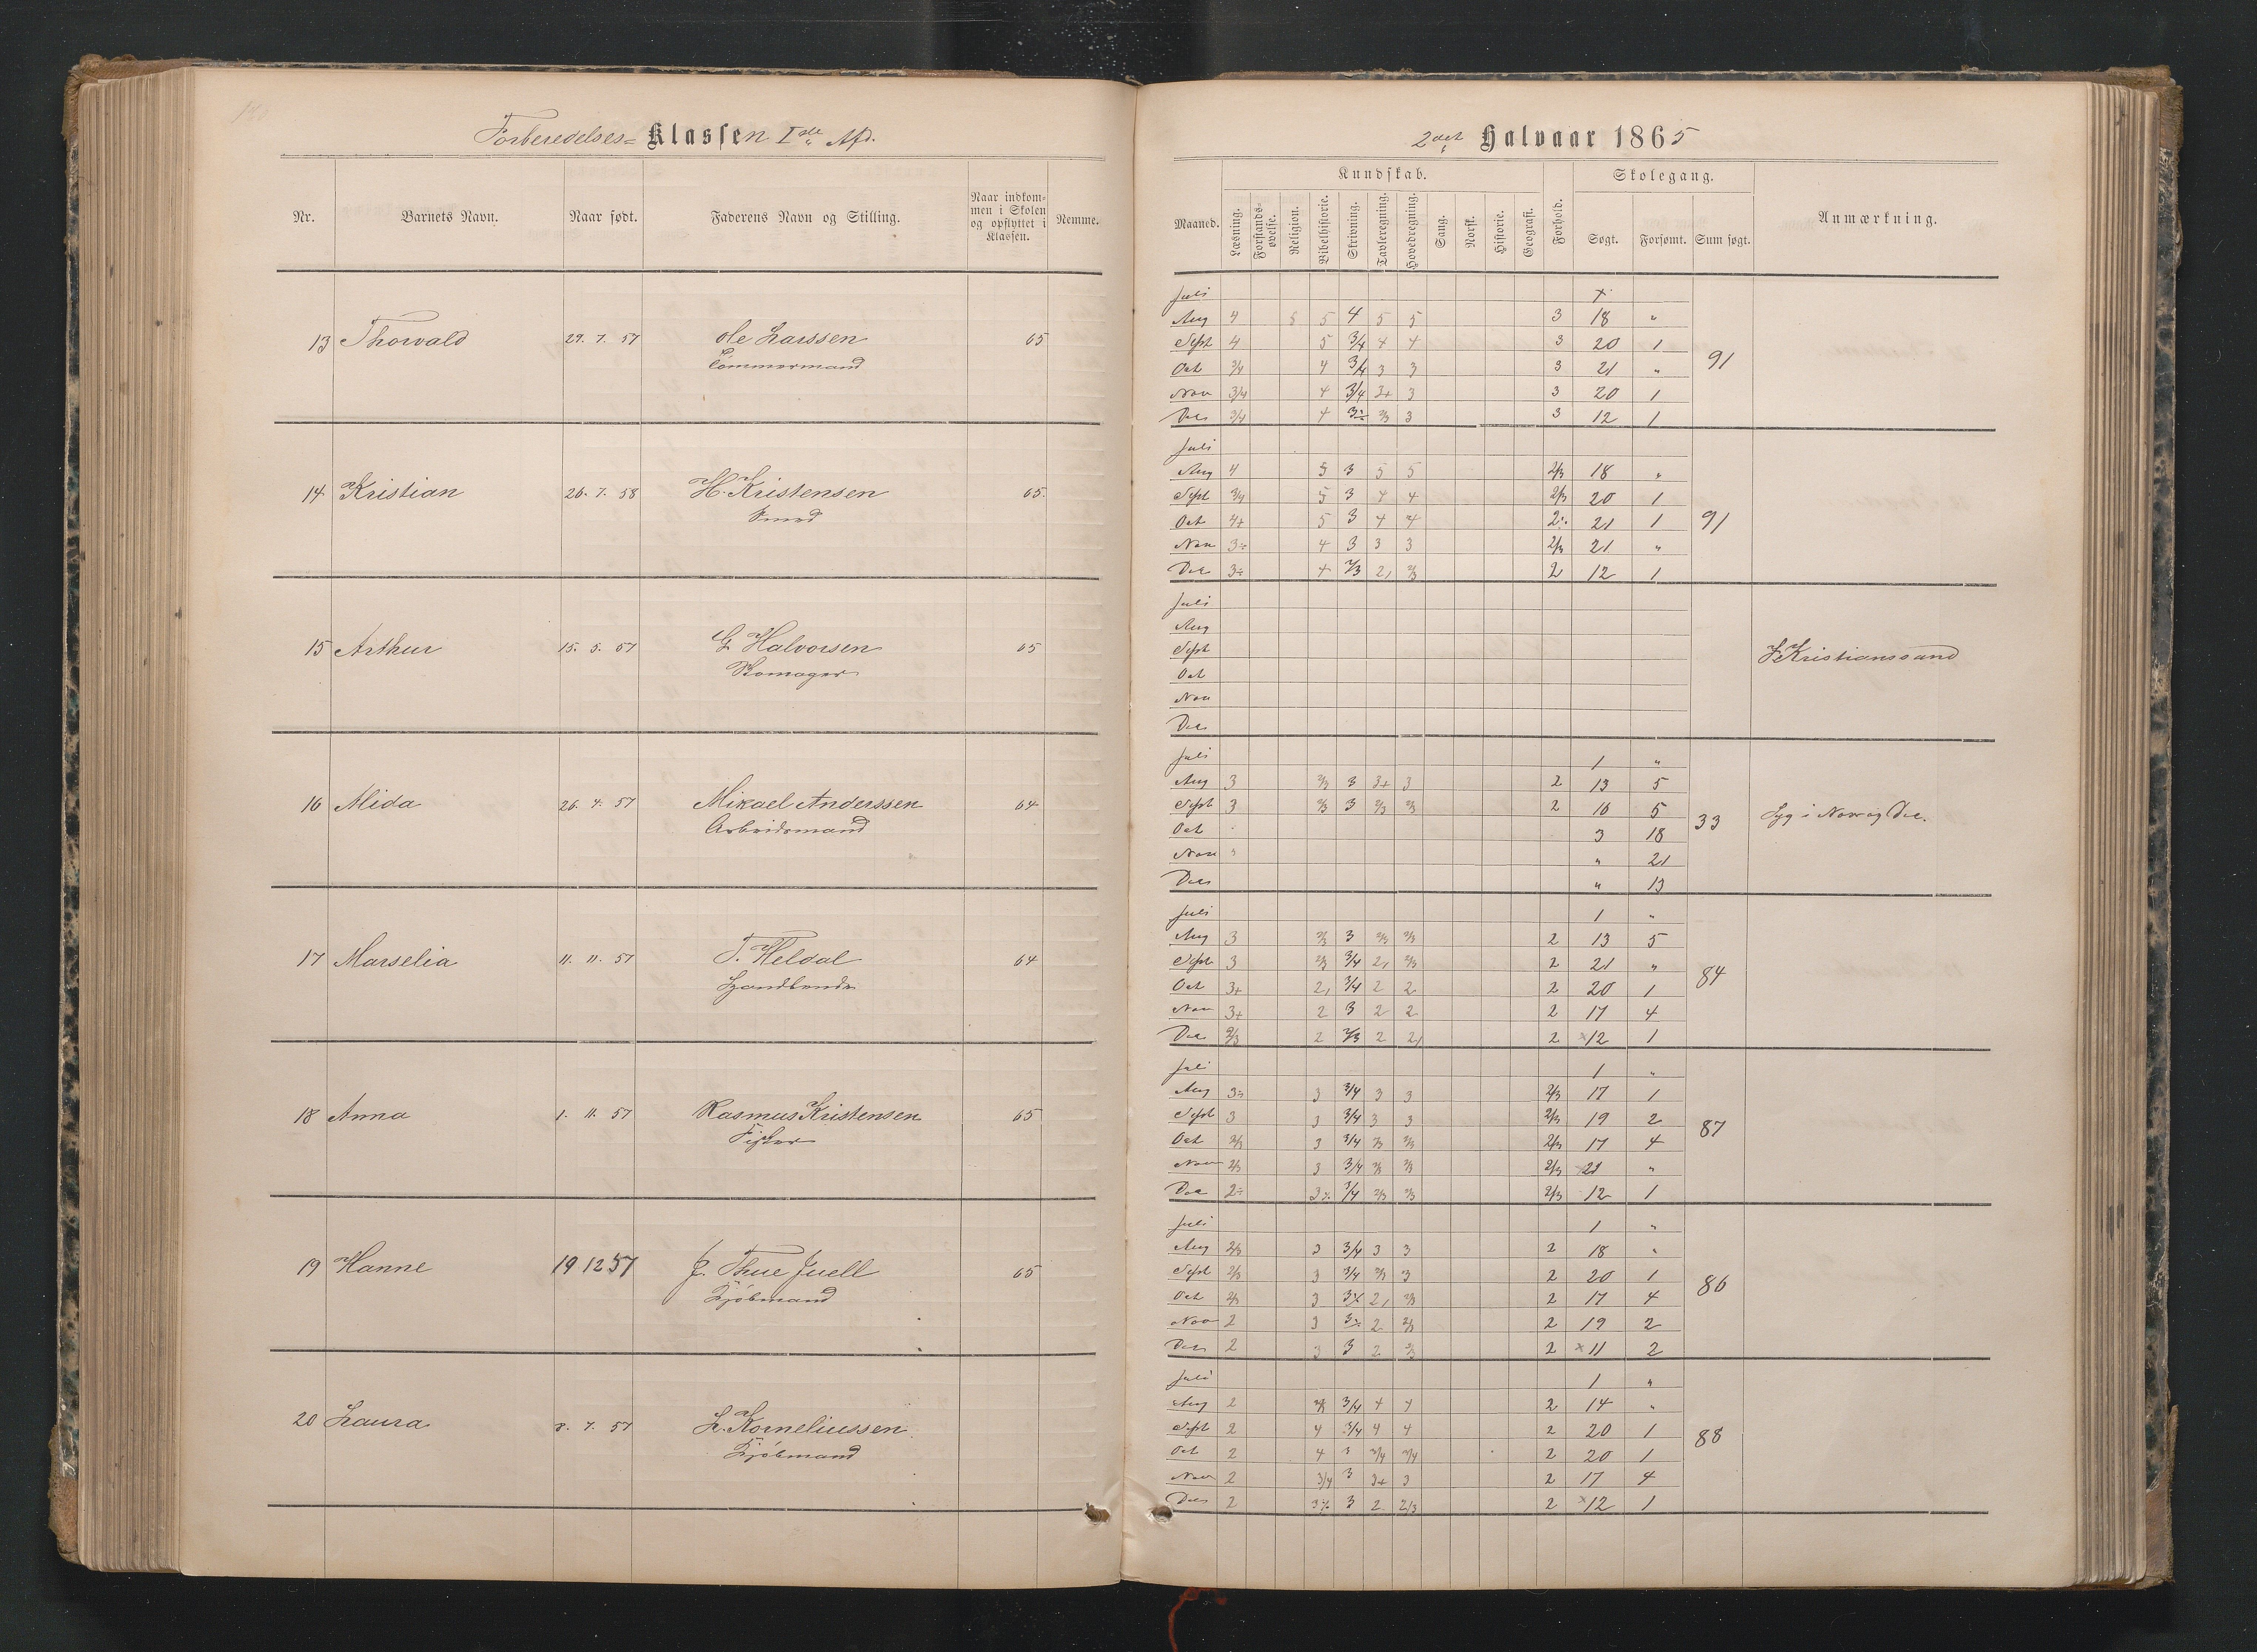 Forberedelses= Klassen Ide Afd.
Nr. Barnets Navn. Naar født. Faderens Navn og Stilling. Naar indkom-men i Skolen og opflyttet i Klassen. Nemme.
13 Thorvald 29. 7. 57 Ole Larssen 65
Tömmermand
14 Kristian 26. 7. 58 H. Kristensen 65.
Smed
15 Arthur 15. 5. 57 G Halvorsen 65
Skomager
16 Alida 26. 4. 57 Mikael Anderssen 64
Arbeidsmand
17 Marselia 11. 11. 57 T. Heldal 64
18 Anna 1. 11. 57 Rasmus Kristensen 65
Fisker
19 Hanne 19 12 57 J. Thue Juell 65
Kjöbmand
20 Laura 8. 7. 57 L. Korneliussen
Kjöbmand
2det Halvaar 1865
Kundskab. Skolegang.
Maaned. Læsning. Forstands-øvelse. Religion. Bibelhistorie. Skrivning. Tavleregning. Hovedregning. Sang. Norsk. Historie. Geografi. Forhold. Søgt. Forsømt. Sum søgt. Anmærkning.
Juli
Aug 4 5 4 5 5 3 18 "
Sept 4 5 3/4 4 4 3 20 1
Oct 3/4 4 3/4 3 3 3 21 " 91
Nov 3/4 4 3/4 3+ 3 3 20 1
Dec 3/4 4 3÷ 2/3 3 3 12 1
Juli
Aug 4 5 3 5 5 2/3 18 "
Sept 3/4 5 3 4 4 2/3 20 1
Oct 4+ 5 3 4 4 2÷ 21 1 91
Nov 3÷ 4 3 3 3 2/3 21 "
Dec 3÷ 4 2/3 2, 2/3 2 12 1
Juli
Aug
Sept Kristianssand
Oct
Nov
Dec
Juli 1 "
Aug 3 2/3 3 3+ 3 2 13 5
Sept 3 2/3 3 2/3 2/3 2 16 5
Oct 3 18 33 Syg i Nov og Dec.
Nov " 21
Dec " 13
Juli 1 "
Aug 3 2/3 3 2/3 2/3 2 13 5
Sept 3 2/3 3/4 2, 2/3 2 21 "
Oct 3+ 2, 3/4 2 2 2 20 1 84
Nov 3+ 2 3 2 2 2 17 4
Dec 2/3 2 2/3 2 2, 2 12 1
Juli 1 "
Aug 3÷ 3 3/4 3 3 2/3 17 1
Sept 3 3 3/4 3 3 2/3 19 2
Oct 2/3 3 3/4 2/3 2/3 2/3 17 4 87
Nov 2/3 3 3/4 2/3 2/3 2/3 21 "
Dec 2÷ 3÷ 3/4 2/3 2/3 2/3 12 1
Juli 1 "
Aug 2/3 3 3/4 3 3 2 18 "
Sept 2/3 3 3/4 2/3 3 2 20 1
Oct 2/3 3 3÷ 2, 2/3 2 17 4 86
Nov 2 3 3÷ 2 2/3 2 19 2
Dec 2 3 3 2 2/3 2 11 2
Juli 1 "
Aug 2 3/4 4 4 2 14 "
Sept 2 4 3/4 4 4 2 20 1
Oct 2 4 3 3/4 3/4 2 20 1 88
Nov 2 3/4 3 3+ 3 2 17 4
Dec 2 3÷ 3 2 2/3 2 12 1